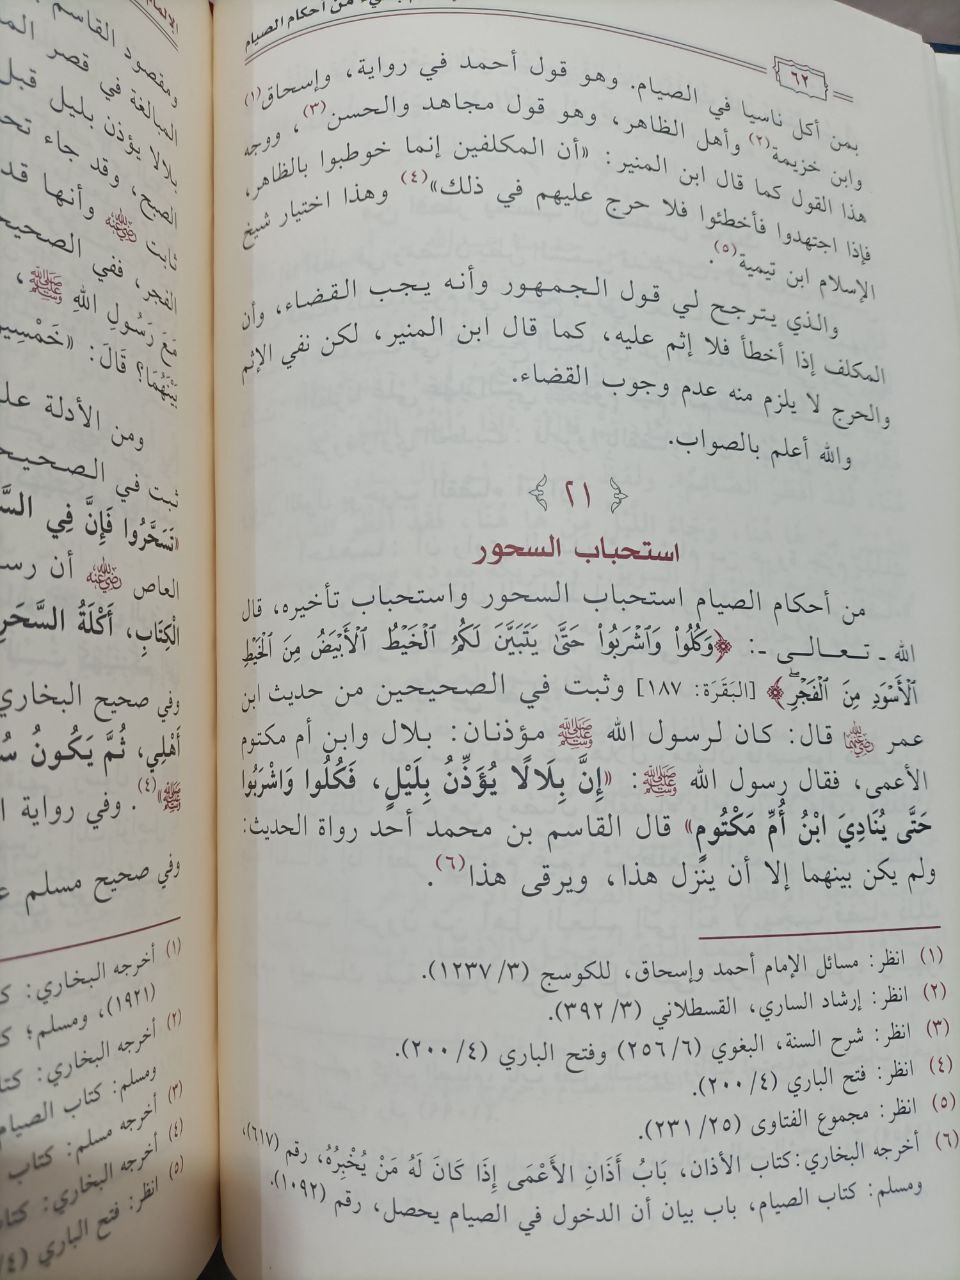 من أحكام الصيام
٦٢
بمن أكل ناسيا في الصيام. وهو قول أحمد في رواية، وإسحاق(١)
وابن خزيمة(٢) وأهل الظاهر، وهو قول مجاهد والحسن(٣)، ووجه
هذا القول كما قال ابن المنير: «أن المكلفين إنما خوطبوا بالظاهر،
فإذا اجتهدوا فأخطئوا فلا حرج عليهم في ذلك»(٤) وهذا اختيار شيخ
الإسلام ابن تيمية(٥).
والذي يترجح لي قول الجمهور وأنه يجب القضاء، وأن
المكلف إذا أخطأ فلا إثم عليه، كما قال ابن المنير، لكن نفي الإثم
والحرج لا يلزم منه عدم وجوب القضاء.
والله أعلم بالصواب.
٢١
استحباب السحور
من أحكام الصيام استحباب السحور واستحباب تأخيره، قال
الله ـ تعالى ـ: ﴿وَكُلُوا۟ وَٱشْرَبُوا۟ حَتَّىٰ يَتَبَيَّنَ لَكُمُ ٱلْخَيْطُ ٱلْأَبْيَضُ مِنَ ٱلْخَيْطِ
ٱلْأَسْوَدِ مِنَ ٱلْفَجْرِۖ﴾ [البَقَرَة: ١٨٧] وثبت في الصحيحين من حديث ابن
عمر رضي الله عنهما قال: كان لرسول الله ﷺ مؤذنان: بلال وابن أم مكتوم
الأعمى، فقال رسول الله ﷺ: «إِنَّ بِلَالًا يُؤَذِّنُ بِلَيْلٍ، فَكُلُوا وَاشْرَبُوا
حَتَّى يُنَادِيَ ابْنُ أُمِّ مَكْتُومٍ» قال القاسم بن محمد أحد رواة الحديث:
ولم يكن بينهما إلا أن ينزل هذا، ويرقى هذا(٦).
(١) انظر: مسائل الإمام أحمد وإسحاق، للكوسج (٣/ ١٢٣٧).
(٢) انظر: إرشاد الساري، القسطلاني (٣/ ٣٩٢).
(٣) انظر: شرح السنة، البغوي (٦/ ٢٥٦) وفتح الباري (٤/ ٢٠٠).
(٤) انظر: فتح الباري (٤/ ٢٠٠).
(٥) انظر: مجموع الفتاوى (٢٥/ ٢٣١).
(٦) أخرجه البخاري: كتاب الأذان، بَابُ أَذَانِ الأَعْمَى إِذَا كَانَ لَهُ مَنْ يُخْبِرُهُ، رقم (٦١٧)،
ومسلم: كتاب الصيام، باب بيان أن الدخول في الصيام يحصل، رقم (١٠٩٢).
ومقصود القاسم
المبالغة في قصر
بلالا يؤذن بليل قبل
الصبح، وقد جاء
ثابت رضي الله عنه وأنها
الفجر، ففي
مَعَ رَسُولِ اللهِ ﷺ،
بَيْنَهُمَا؟ قَالَ:
ومن الأدلة
ثبت في
«تَسَحَّرُوا فَإِنَّ فِي
العاص رضي الله عنه أن
الْكِتَابِ، أَكْلَةُ السَّحَرِ
وفي صحيح البخاري
أَهْلِي، ثُمَّ يَكُونُ
ﷺ»(٤). وفي رواية
وفي صحيح مسلم
(١) أخرجه البخاري:
(١٩٢١)، ومسلم؛
(٢) أخرجه البخاري:
ومسلم: كتاب الصيام
(٣) أخرجه مسلم: كتاب
(٤) أخرجه البخاري:
(٥) انظر: فتح الباري